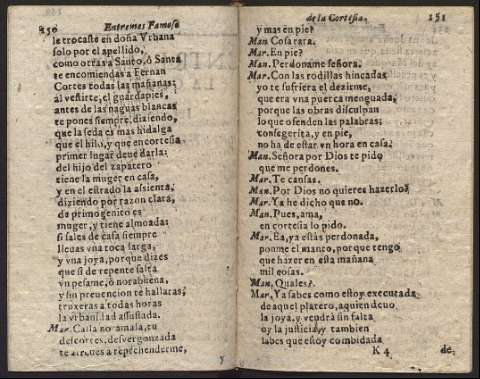 250 Entremes Famoso
le trocaste en doña Vrbana
solo por el apellido,
como otras a Santo, ò Santa
te encomiendas a Fernan
Cortes todas las mañanas:
al vestirte, el guardapies,
antes de las naguas blancas
te pones siempre, diziendo,
que la seda es mas hidalga
que el hilo, y que en cortesia
primer lugar deue darla:
del hijo del zapatero
tiene la muger en casa,
y en el estrado la assienta,
diziendo por razon clara,
de primogenito es
muger, y tiene almoada:
si sales de casa siempre
lleuas vna toca larga,
y vna joya, porque dizes
que si de repente salta
vn pesame, ò norabuena,
y sin preuencion te hallaras,
truxeras a todas horas
la vrbanidad assustada.
Mar. Calla noramala, tu
descortes, desvergonzada
te atreues a reprehenderme,
y
de la Cortesia. 151
y mas en pie?
Man. Cosa rara.
Mar. En pie?
Man. Perdoname señora.
Mar. Con las rodillas hincadas
yo te sufriera el dezirme,
que era vna puerca menguada,
porque las obras disculpan
lo que ofenden las palabras;
conseguerita, y en pie,
no ha de estar vn hora en casa.
Man. Señora por Dios te pido
que me perdones.
Mar. Te cansas.
Man. Por Dios no quieres hazerlo?
Mar. Ya he dicho que no.
Man. Pues, ama,
en cortesia lo pido.
Mar. Ea, ya estàs perdonada,
ponme el manto, porque tengo
que hazer en esta mañana
mil cosas.
Man. Quales?
Mar. Ya sabes como estoy executada
de aquel platero, a quien deuo
la joya, y vendrà sin falta
oy la justicia, y tambien
sabes que estoy combidada
K 4 de